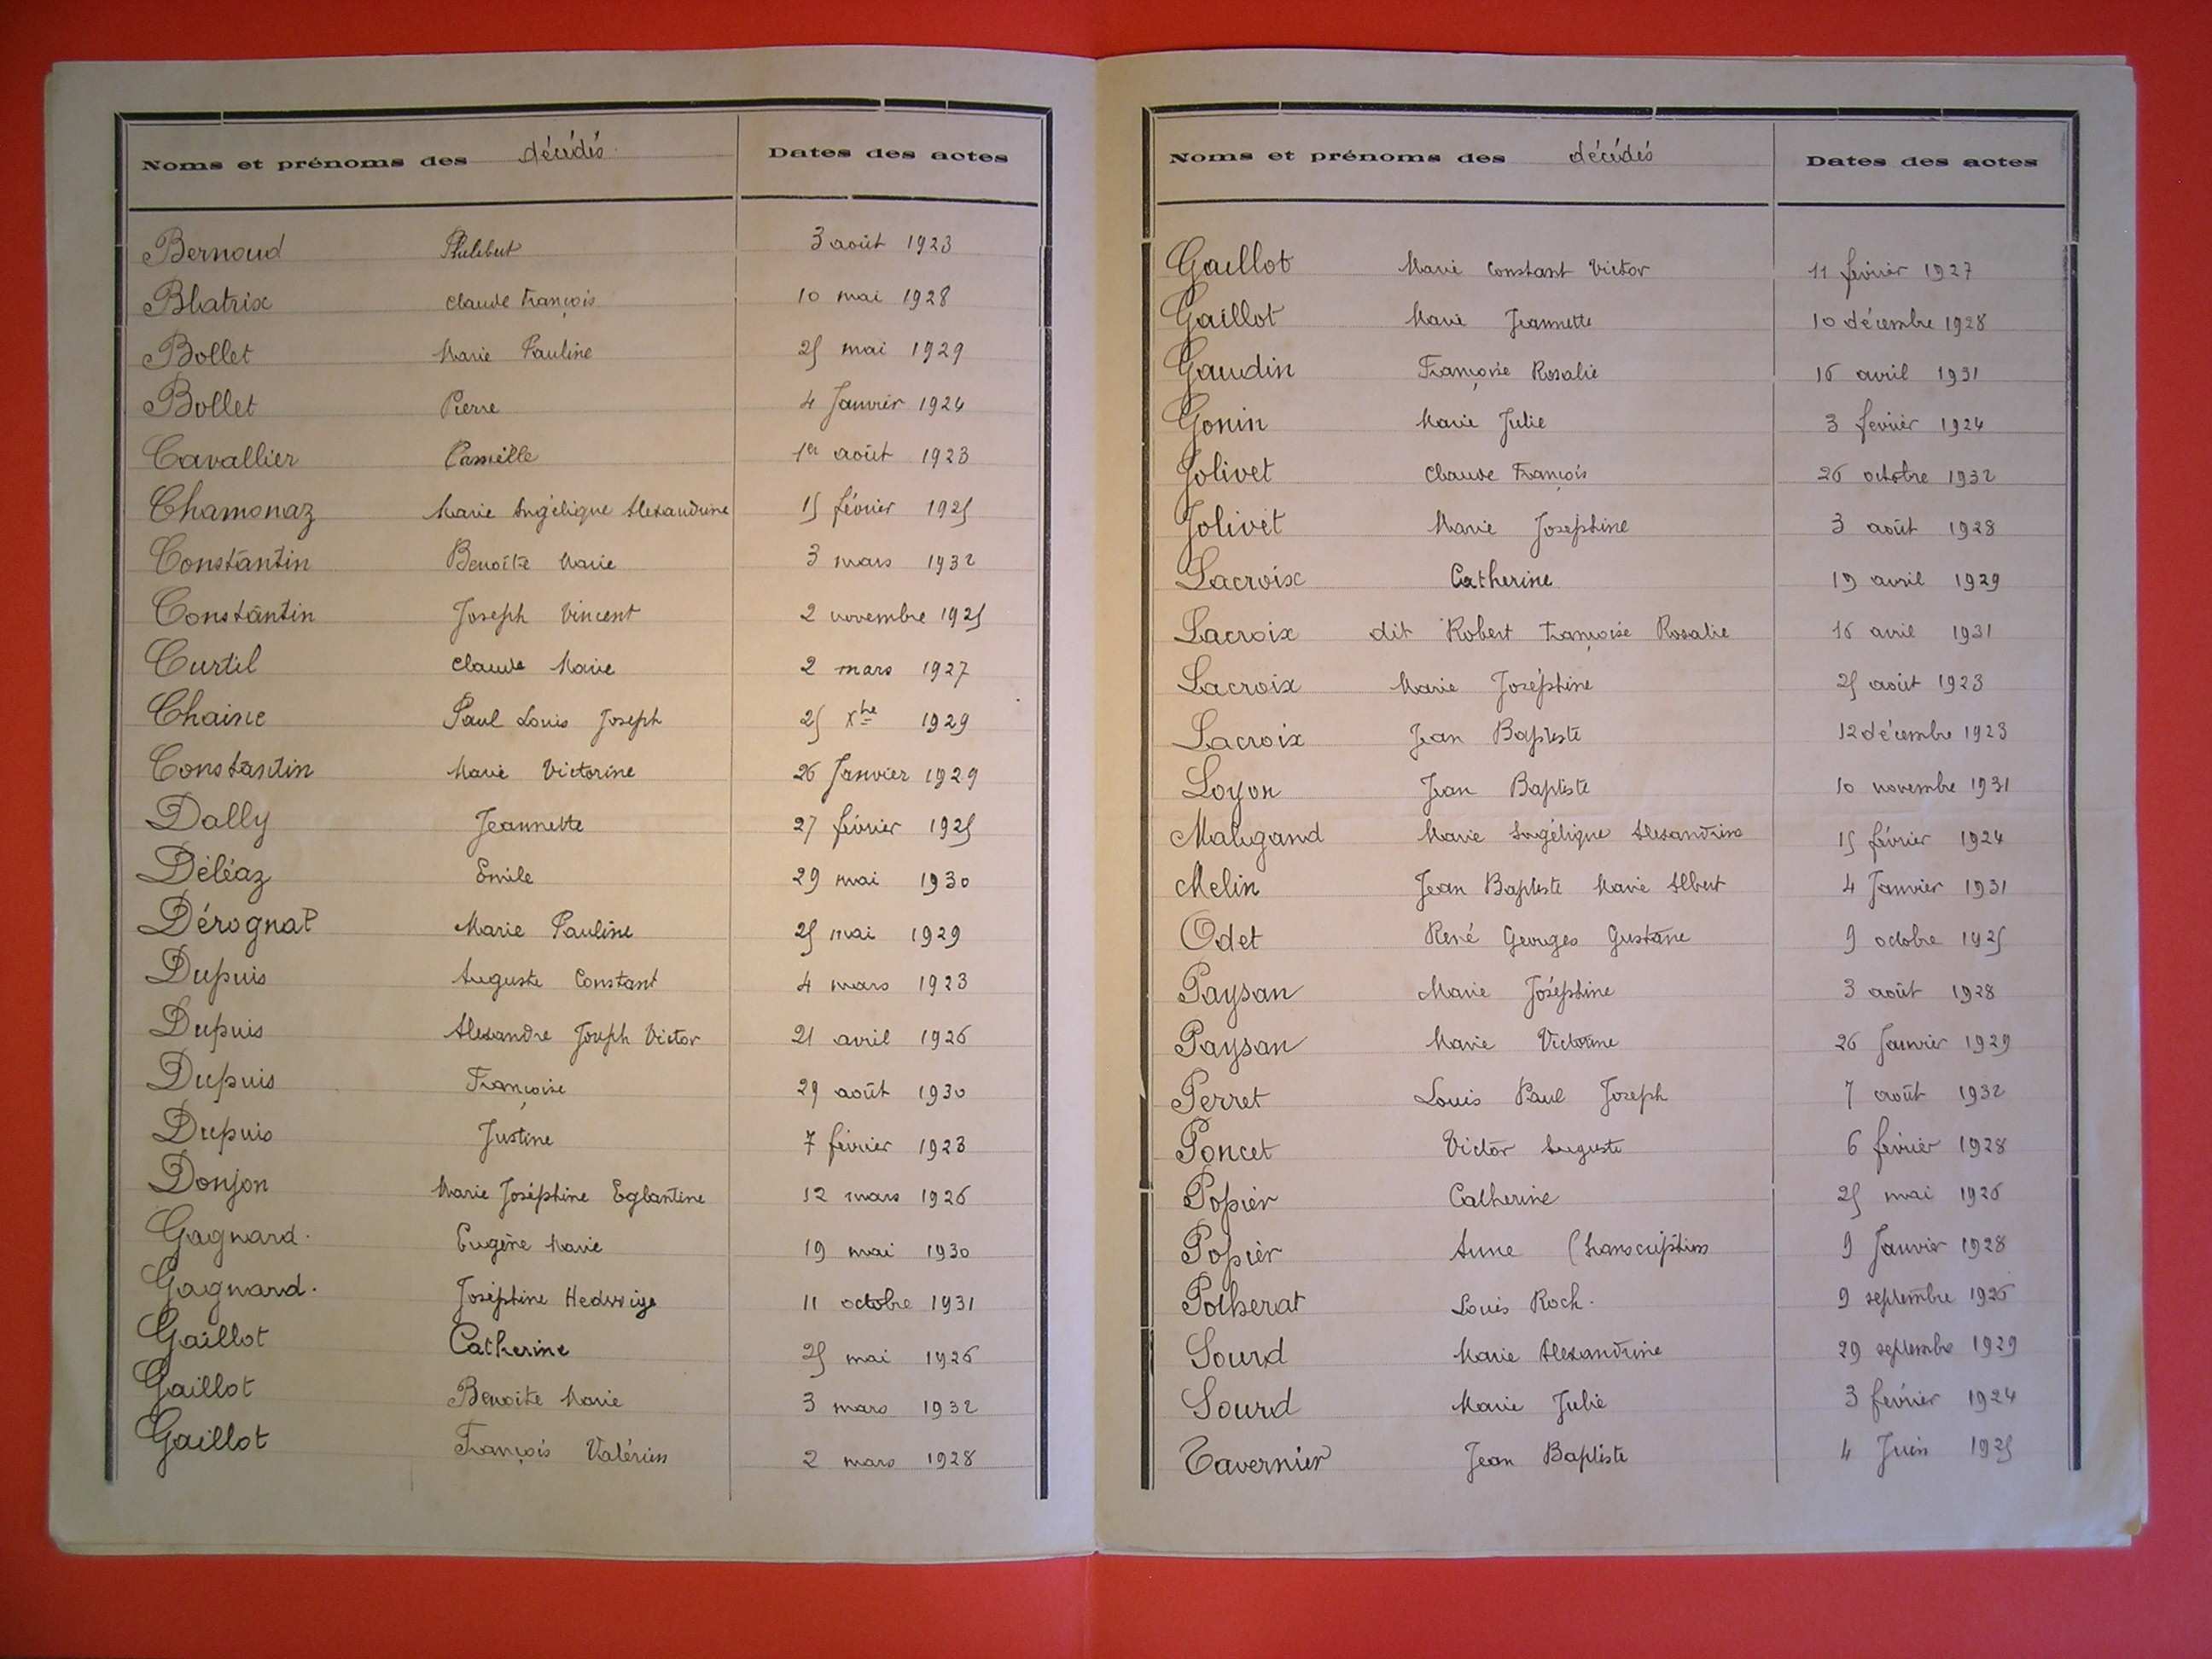 Noms et prénoms des décédés Dates des actes
Bernoud Philibert 3 août 1923
Blatrix Claude François 10 mai 1928
Bollet Marie Pauline 25 mai 1929
Bollet Pierre 4 Janvier 1924
Cavallier Camille 1er août 1923
Chamonaz Marie Angélique Alexandrine 15 février 1925
Constantin Benoîte Marie 3 mars 1932
Constantin Joseph Vincent 2 novembre 1925
Curtil Claude Marie 2 mars 1927
Chaine Paul Louis Joseph 25 Xbre 1929
Constantin Marie Victorine 26 Janvier 1929
Dally Jeannette 27 février 1925
Déléaz Emile 29 mai 1930
Dérognat Marie Pauline 25 mai 1929
Dupuis Auguste Constant 4 mars 1923
Dupuis Alexandre Joseph Victor 21 avril 1926
Dupuis Françoise 29 août 1930
Dupuis Justine 7 février 1923
Donjon Marie Joséphine Eglantine 12 mars 1926
Gagnard. Eugène Marie 19 mai 1930
Gagnard. Joséphine Hedwige 11 octobre 1931
Gaillot Catherine 25 mai 1926
Gaillot Benoite Marie 3 mars 1932
Gaillot François Valérien 2 mars 1928
Noms et prénoms des décédés Dates des actes
Gaillot Marie Constant Victor 11 février 1927
Gaillot Marie Jeannette 10 décembre 1928
Gaudin Françoise Rosalie 16 avril 1931
Gonin Marie Julie 3 février 1924
Jolivet Claude François 26 octobre 1932
Jolivet Marie Josephine 3 août 1928
Lacroix Catherine 19 avril 1929
Lacroix dit Robert Françoise Rosalie 16 avril 1931
Lacroix Marie Joséphine 25 août 1923
Lacroix Jean Baptiste 12 décembre 1923
Loyon Jean Baptiste 10 novembre 1931
Maligand Marie Angélique Alexandrine 15 février 1924
Melin Jean Baptiste Marie Albert 4 Janvier 1931
Odet René Georges Gustave 9 octobre 1925
Paysan Marie Joséphine 3 août 1928
Paysan Marie Victorine 26 Janvier 1929
Perret Louis Paul Joseph 7 août 1932
Poncet Victor Auguste 6 février 1928
Popier Catherine 25 mai 1926
Popier Anne (transcription 9 Janvier 1928
Potherat Louis Roch. 9 septembre 1926
Sourd Marie Alexandrine 29 septembre 1929
Sourd Marie Julie 3 février 1924
Tavernier Jean Baptiste 4 Juin 1925